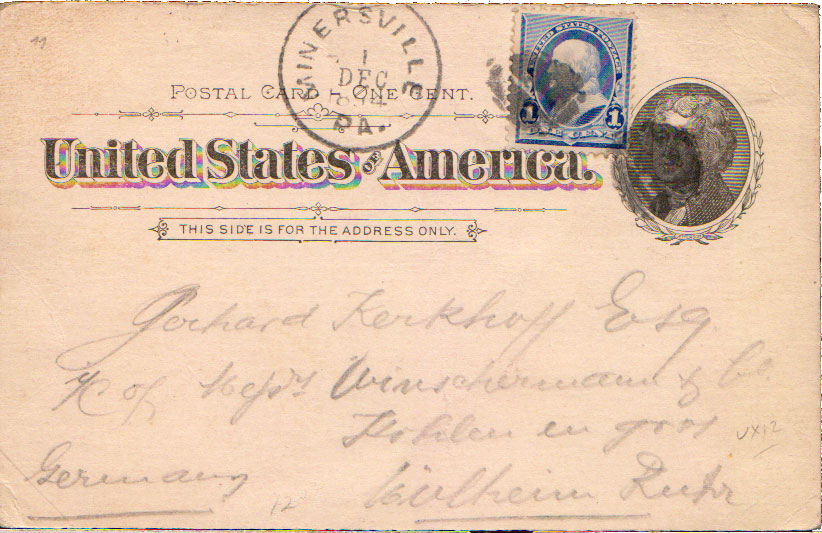 MINERSVILLE
1
DEC
1894
PA.
UNITED STATES POSTAGE
1 1
POSTAL CARD – ONE CENT.
United States of America.
THIS SIDE IS FOR THE ADDRESS ONLY.
Gerhard Kerkhoff Esq
c/o of Messrs Winschermann & Co
Kohlen en gros
VX12
Germany
12
Mülheim Ruhr